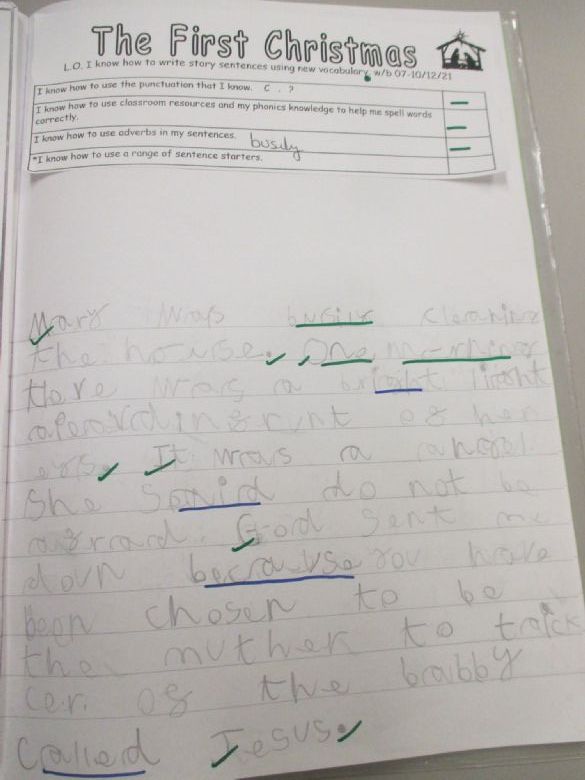 The First Christmas
L.O. I know how to write story sentences using new vocabulary. w/b 07-10/12/21
I know how to use the punctuation that I know. C . ?
I know how to use classroom resources and my phonics knowledge to help me spell words
correctly.
I know how to use adverbs in my sentences. busily
*I know how to use a range of sentence starters.
Mary was busily cleaning
the house. One morning
thare was a bright light
in frunt of her
eys. It was a
She said do not be
God sent me
down because you have
been chosen to be
the muther to tack
cer of the babby
called Jesus.